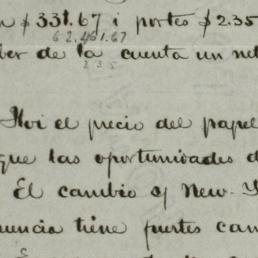 n $331.67 i portes $2.35
62.461.67
ber de la cuenta un net
235
Hoi el precio del papel
que las oportunidades d
El cambio s/ New. Y
nuncia tiene fuertes cam